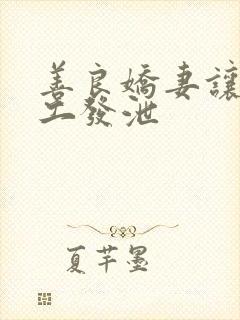 善良嬌妻讓
工發泄
夏芊墨